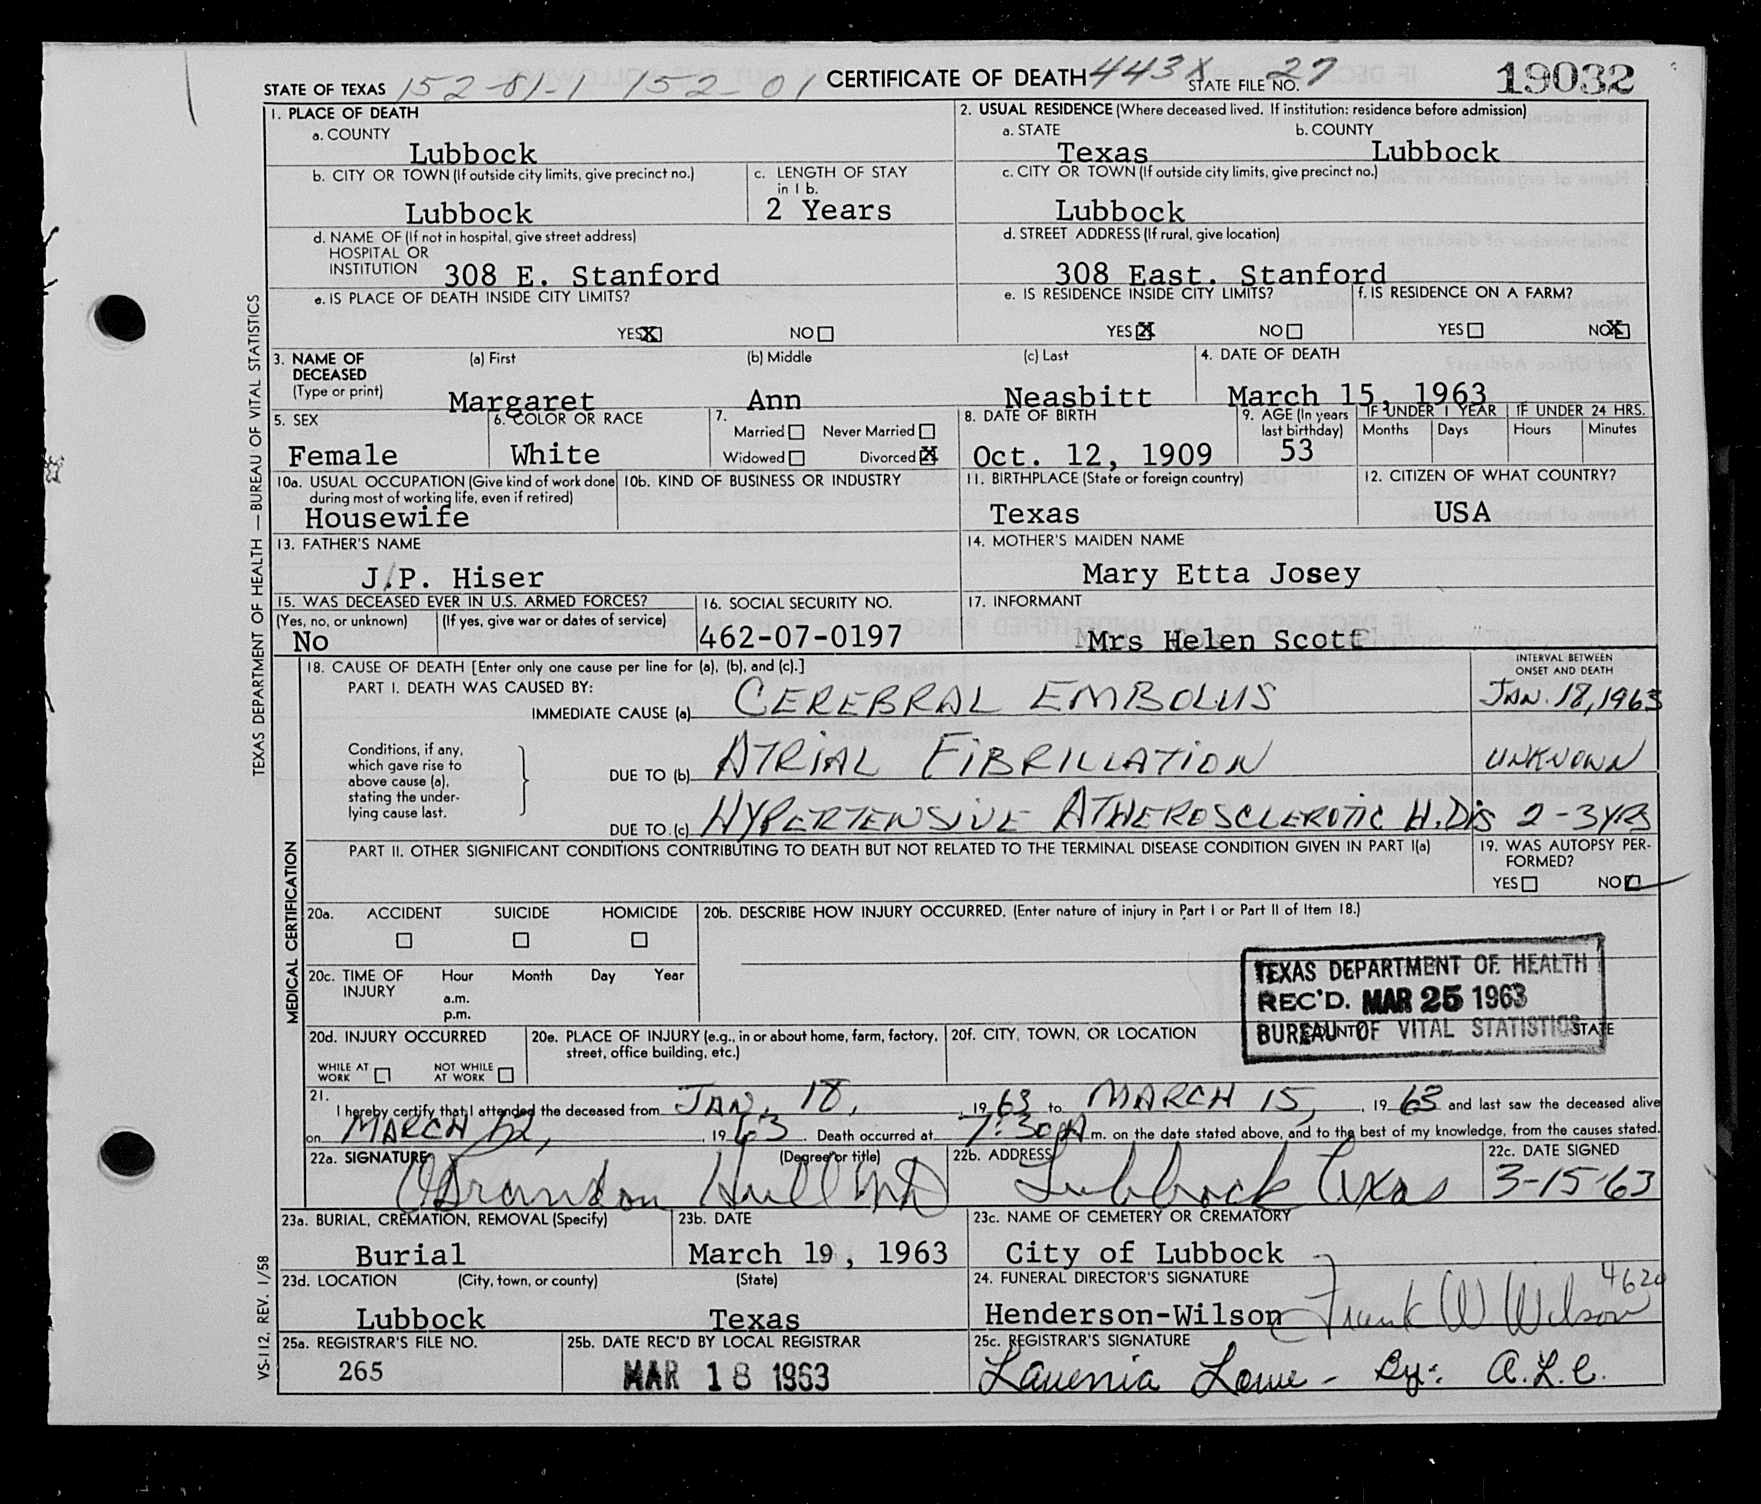 STATE OF TEXAS 152-81-1 152-01 CERTIFICATE OF DEATH 443X STATE FILE NO. 27 19032
1. PLACE OF DEATH
a. COUNTY
Lubbock
2. USUAL RESIDENCE (Where deceased lived. If institution: residence before admission)
a. STATE b. COUNTY
Texas Lubbock
b. CITY OR TOWN (If outside city limits, give precinct no.)
Lubbock
c. LENGTH OF STAY
in 1 b.
2 Years
c. CITY OR TOWN (If outside city limits, give precinct no.)
Lubbock
d. NAME OF (If not in hospital, give street address)
HOSPITAL OR
INSTITUTION 308 E. Stanford
d. STREET ADDRESS (If rural, give location)
308 East. Stanford
e. IS PLACE OF DEATH INSIDE CITY LIMITS?
YES X NO
e. IS RESIDENCE INSIDE CITY LIMITS?
YES X NO
f. IS RESIDENCE ON A FARM?
YES NO X
3. NAME OF
DECEASED
(Type or print)
(a) First (b) Middle (c) Last
Margaret Ann Neasbitt
4. DATE OF DEATH
March 15, 1963
5. SEX
Female
6. COLOR OR RACE
White
7.
Married Never Married
Widowed Divorced X
8. DATE OF BIRTH
Oct. 12, 1909
9. AGE (In years
last birthday)
53
IF UNDER 1 YEAR
Months Days
IF UNDER 24 HRS.
Hours Minutes
10a. USUAL OCCUPATION (Give kind of work done
during most of working life, even if retired)
Housewife
10b. KIND OF BUSINESS OR INDUSTRY
11. BIRTHPLACE (State or foreign country)
Texas
12. CITIZEN OF WHAT COUNTRY?
USA
13. FATHER'S NAME
J.P. Hiser
14. MOTHER'S MAIDEN NAME
Mary Etta Josey
15. WAS DECEASED EVER IN U.S. ARMED FORCES?
(Yes, no, or unknown) (If yes, give war or dates of service)
No
16. SOCIAL SECURITY NO.
462-07-0197
17. INFORMANT
Mrs Helen Scott
18. CAUSE OF DEATH [Enter only one cause per line for (a), (b), and (c).]
INTERVAL BETWEEN
ONSET AND DEATH
PART I. DEATH WAS CAUSED BY:
IMMEDIATE CAUSE (a) CEREBRAL EMBOLUS JAN. 18, 1963
Conditions, if any,
which gave rise to
above cause (a),
stating the under-
lying cause last.
DUE TO (b) ATRIAL FIBRILLATION UNKNOWN
DUE TO (c) HYPERTENSIVE ATHEROSCLEROTIC H.DIS 2-3 YRS
PART II. OTHER SIGNIFICANT CONDITIONS CONTRIBUTING TO DEATH BUT NOT RELATED TO THE TERMINAL DISEASE CONDITION GIVEN IN PART I(a)
19. WAS AUTOPSY PER-
FORMED?
YES NO
20a. ACCIDENT SUICIDE HOMICIDE
20b. DESCRIBE HOW INJURY OCCURRED. (Enter nature of injury in Part I or Part II of Item 18.)
20c. TIME OF
INJURY
Hour Month Day Year
a.m.
p.m.
TEXAS DEPARTMENT OF HEALTH
REC'D. MAR 25 1963
BUREAU OF VITAL STATISTICS
20d. INJURY OCCURRED
WHILE AT
WORK
NOT WHILE
AT WORK
20e. PLACE OF INJURY (e.g., in or about home, farm, factory,
street, office building, etc.)
20f. CITY, TOWN, OR LOCATION COUNTY STATE
21.
I hereby certify that I attended the deceased from JAN. 18, , 19 63 to MARCH 15, , 19 63 and last saw the deceased alive
on MARCH 12, , 19 63. Death occurred at 7:30 A m. on the date stated above, and to the best of my knowledge, from the causes stated.
22a. SIGNATURE (Degree or title)
Brandon Hull MD
22b. ADDRESS
Lubbock Texas
22c. DATE SIGNED
3-15-63
23a. BURIAL, CREMATION, REMOVAL (Specify)
Burial
23b. DATE
March 19, 1963
23c. NAME OF CEMETERY OR CREMATORY
City of Lubbock
23d. LOCATION (City, town, or county) (State)
Lubbock Texas
24. FUNERAL DIRECTOR'S SIGNATURE 4620
Henderson-Wilson Frank W Wilson
25a. REGISTRAR'S FILE NO.
265
25b. DATE REC'D BY LOCAL REGISTRAR
MAR 18 1963
25c. REGISTRAR'S SIGNATURE
Lavenia Lowe - By: A.L.C.
TEXAS DEPARTMENT OF HEALTH — BUREAU OF VITAL STATISTICS
MEDICAL CERTIFICATION
VS-112, REV. 1/58